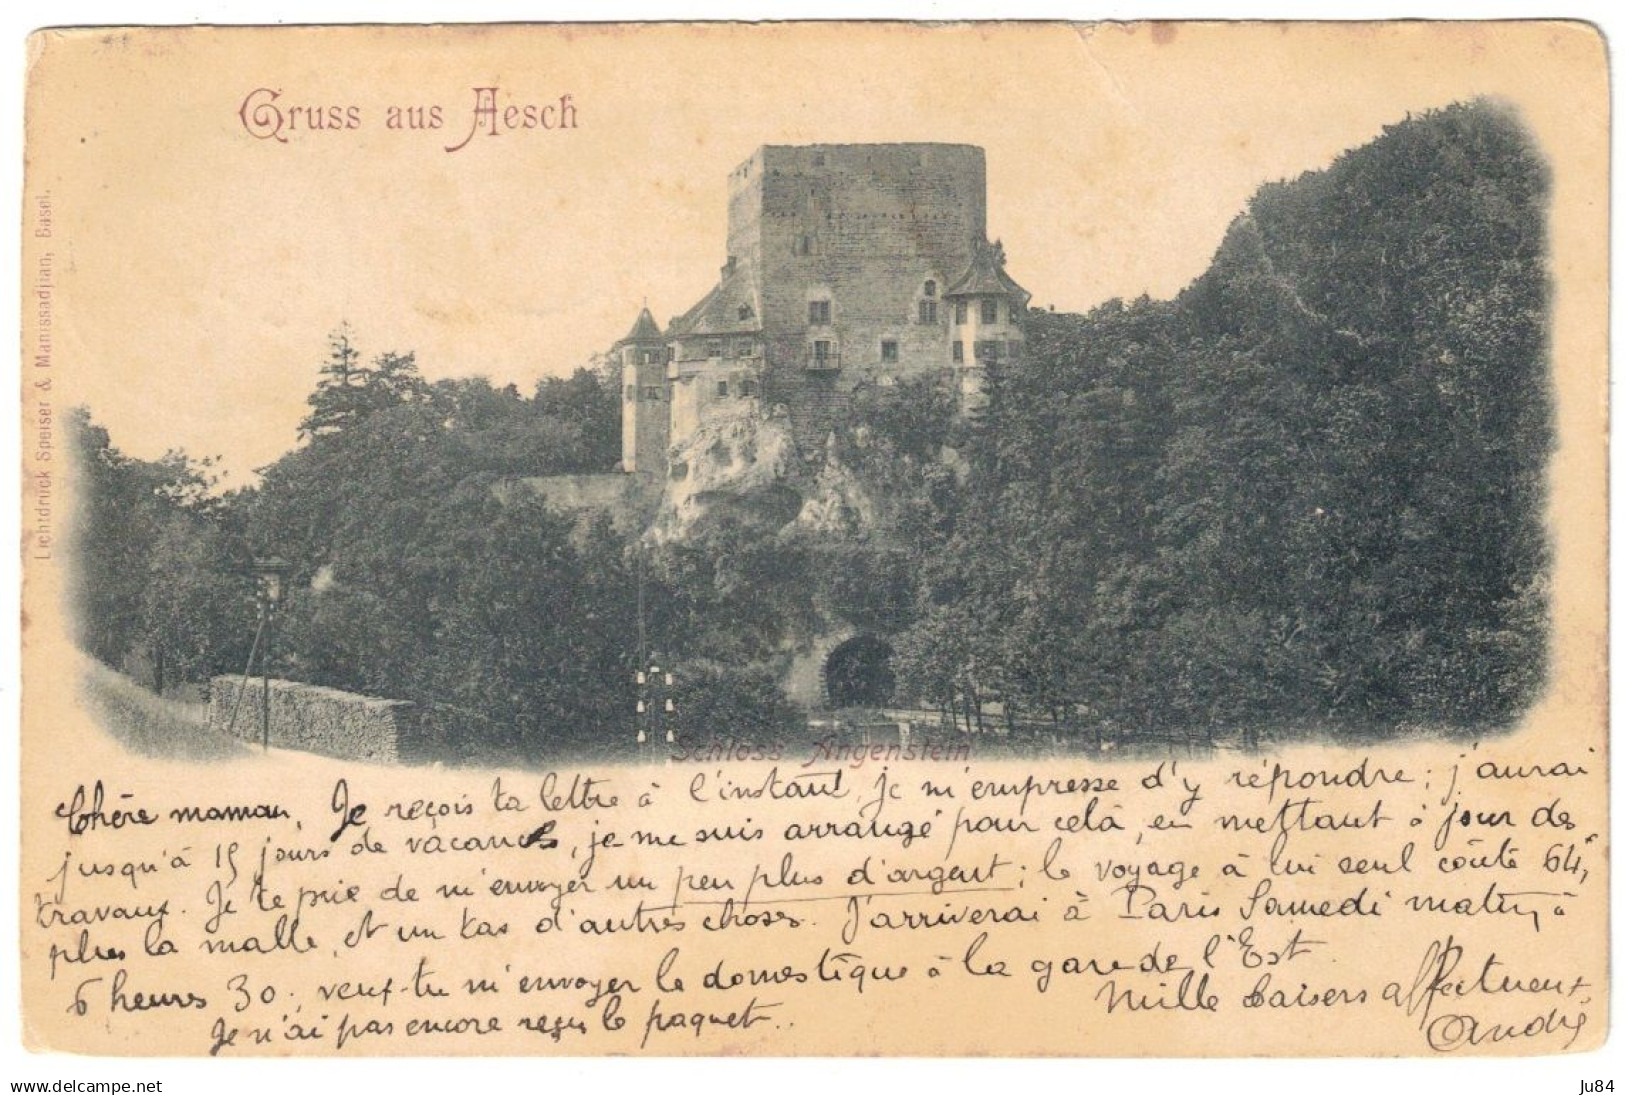 Gruss aus Aesch
Lichtdruck Speiser & Manissadjian, Basel.
Schloss Angenstein
Chère maman, Je reçois ta lettre à l'instant, je m'empresse d'y répondre ; j'aurai
jusqu'à 15 jours de vacances, je me suis arrangé pour celà, en mettant à jour des
travaux. Je te prie de m'envoyer un peu plus d'argent ; le voyage à lui seul coûte 64f,
plus la malle, et un tas d'autres choses. J'arriverai à Paris Samedi matin, à
6 heures 30 ; veux-tu m'envoyer le domestique à la gare de l'Est.
Je n'ai pas encore reçu le paquet..
Mille baisers affectueux,
André
www.delcampe.net
Ju84